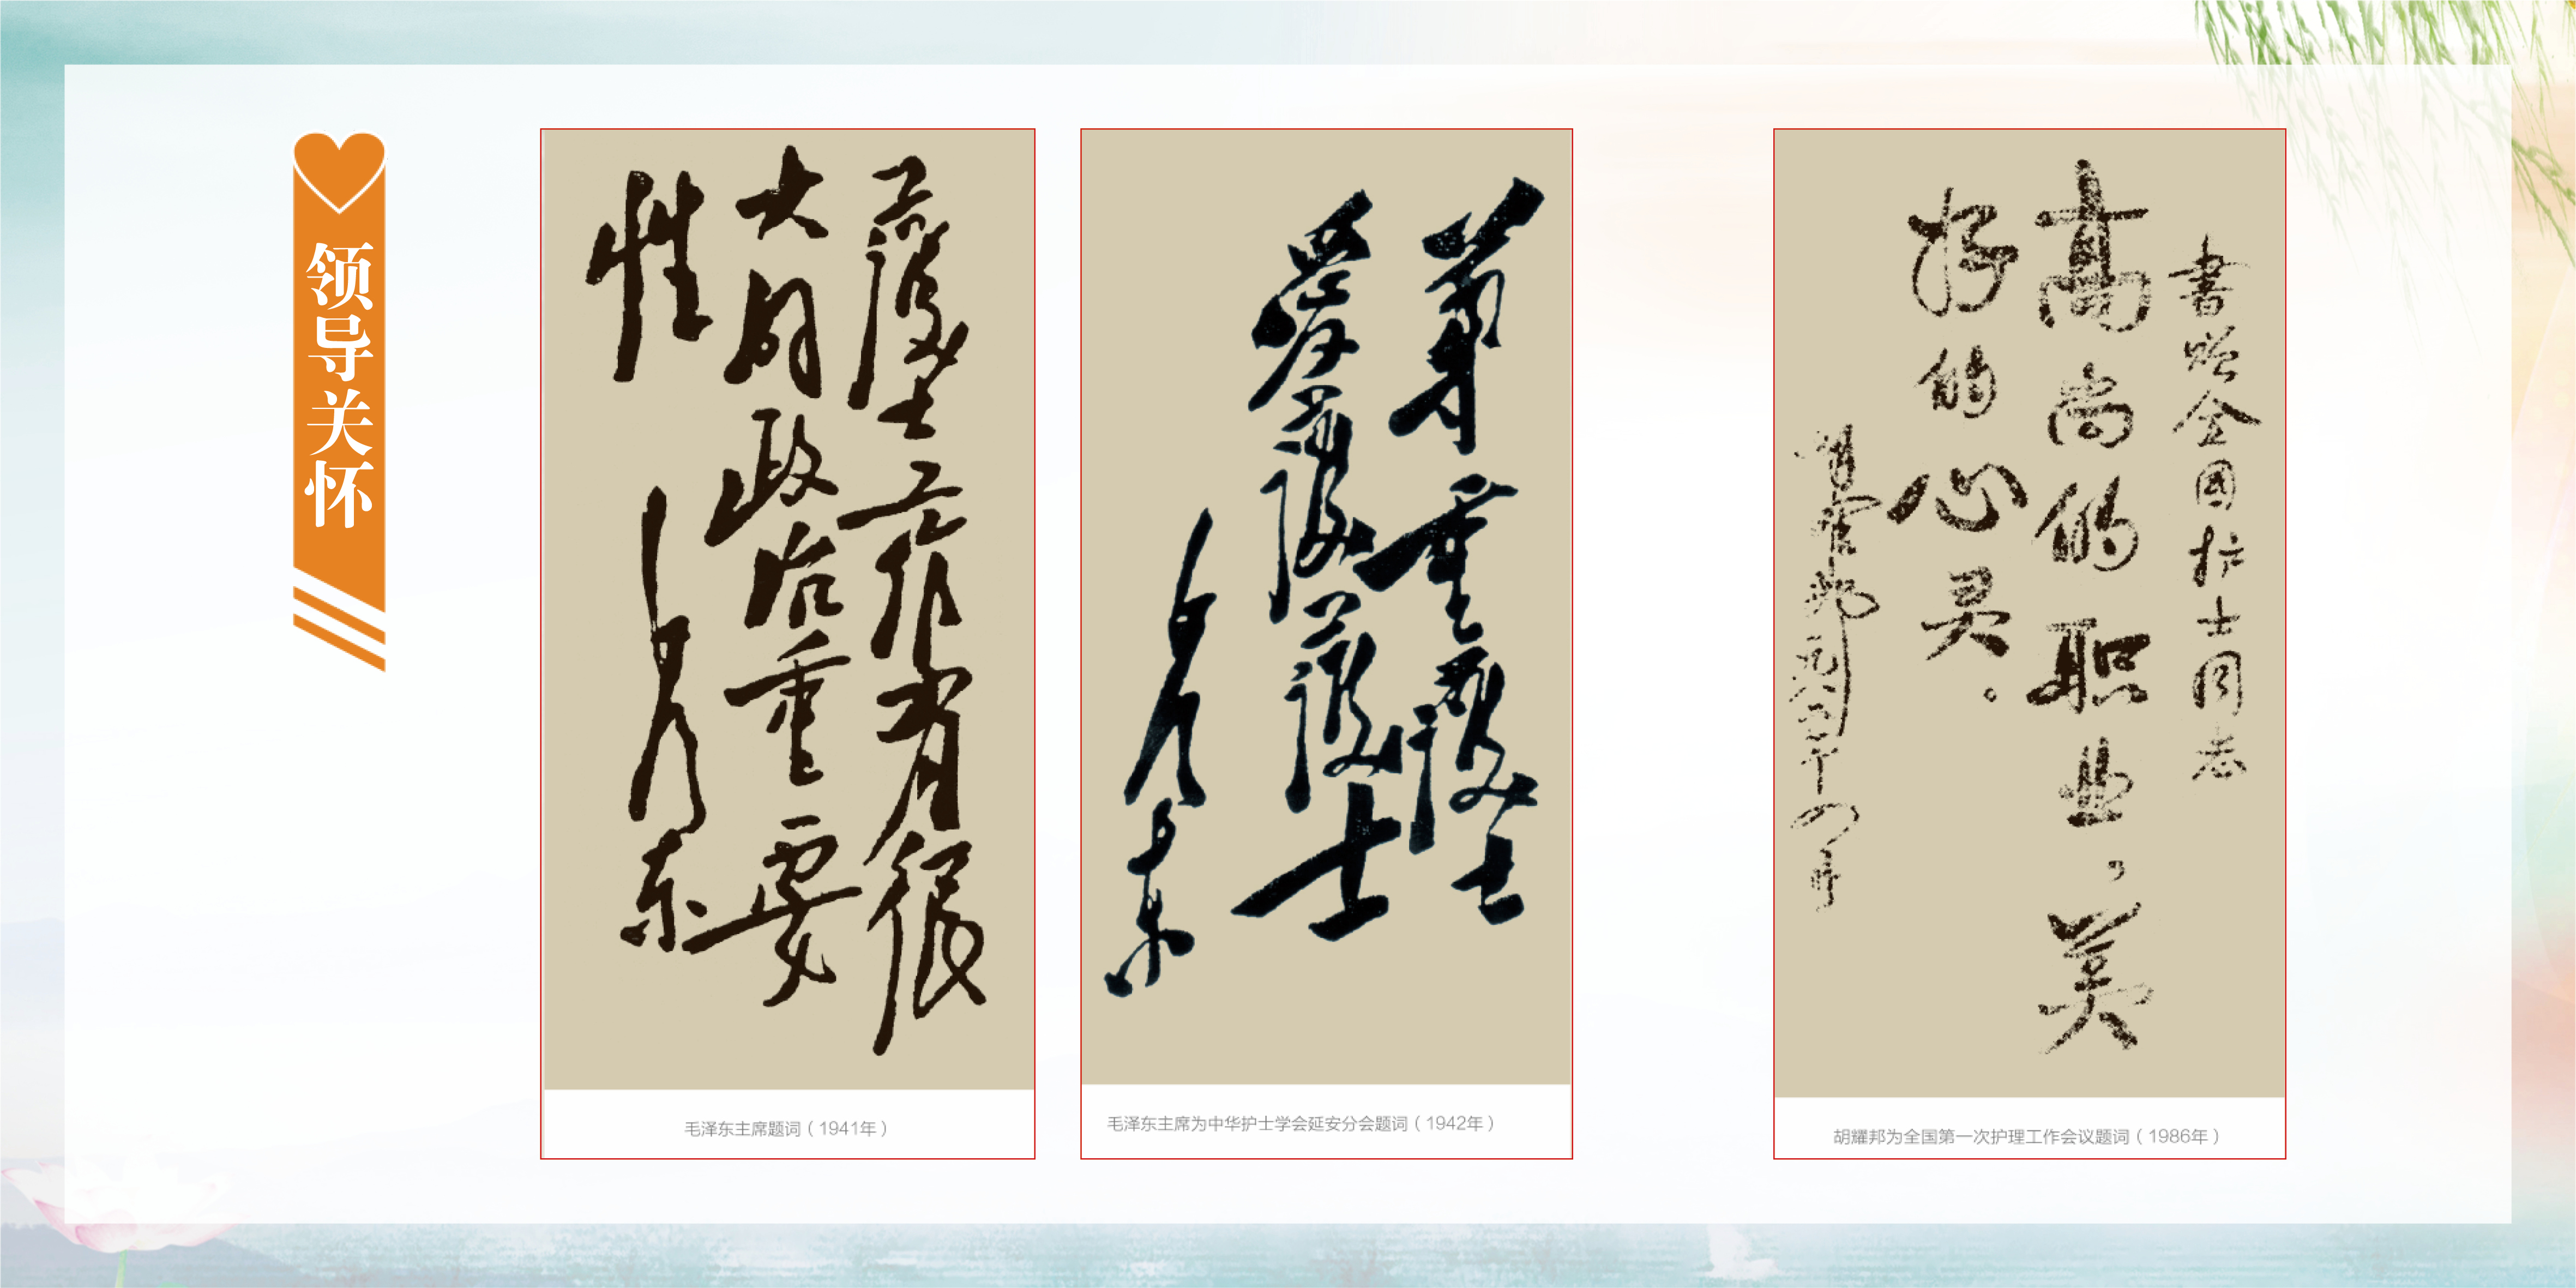 领导关怀
護士工作有很
大的政治重要
性
毛泽东
毛泽东主席题词（1941年）
尊重護士
爱護護士
毛泽东
毛泽东主席为中华护士学会延安分会题词（1942年）
書赠全国护士同志
高尚的职业，美
好的心灵。
胡耀邦
胡耀邦为全国第一次护理工作会议题词（1986年）